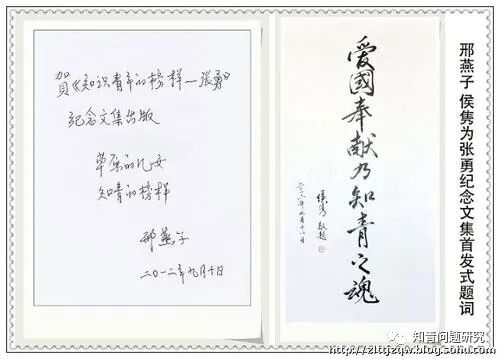 賀《知识青年的榜样—张勇》
纪念文集出版
草原的儿女
知青的榜样
邢燕子
二〇一二年九月十日
愛國奉献乃知青之魂
侯隽 敬题
邢燕子 侯隽为张勇纪念文集首发式题词
知青问题研究